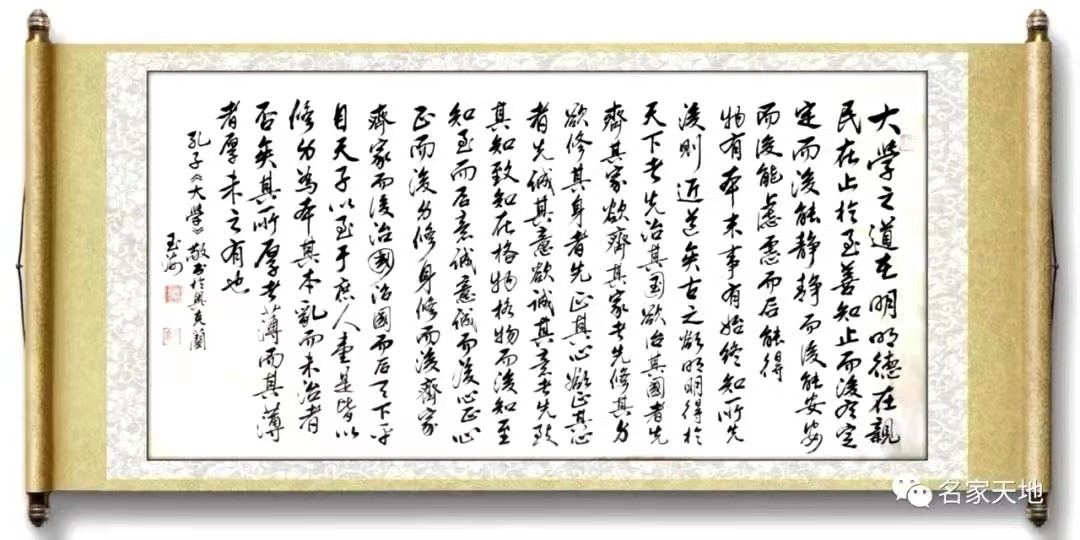 大學之道在明明德在親
民在止於至善知止而後有定
定而後能静静而後能安安
而後能慮慮而后能得
物有本末事有始終知所先
後則近道矣古之欲明明得於
天下者先治其国欲治其國者先
齊其家欲齊其家者先修其身
欲修其身者先正其心欲正其心
者先誠其意欲誠其意者先致
其知致知在格物格物而後知至
知至而后意誠意誠而後心正心
正而後身修身修而後齊家
齊家而後治國治國而后天下平
自天子以至于庶人壹是皆以
修身為本其本亂而末治者
否矣其所厚者薄而其薄
者厚未之有也
孔子《大學》敬书於奥克蘭
名家天地